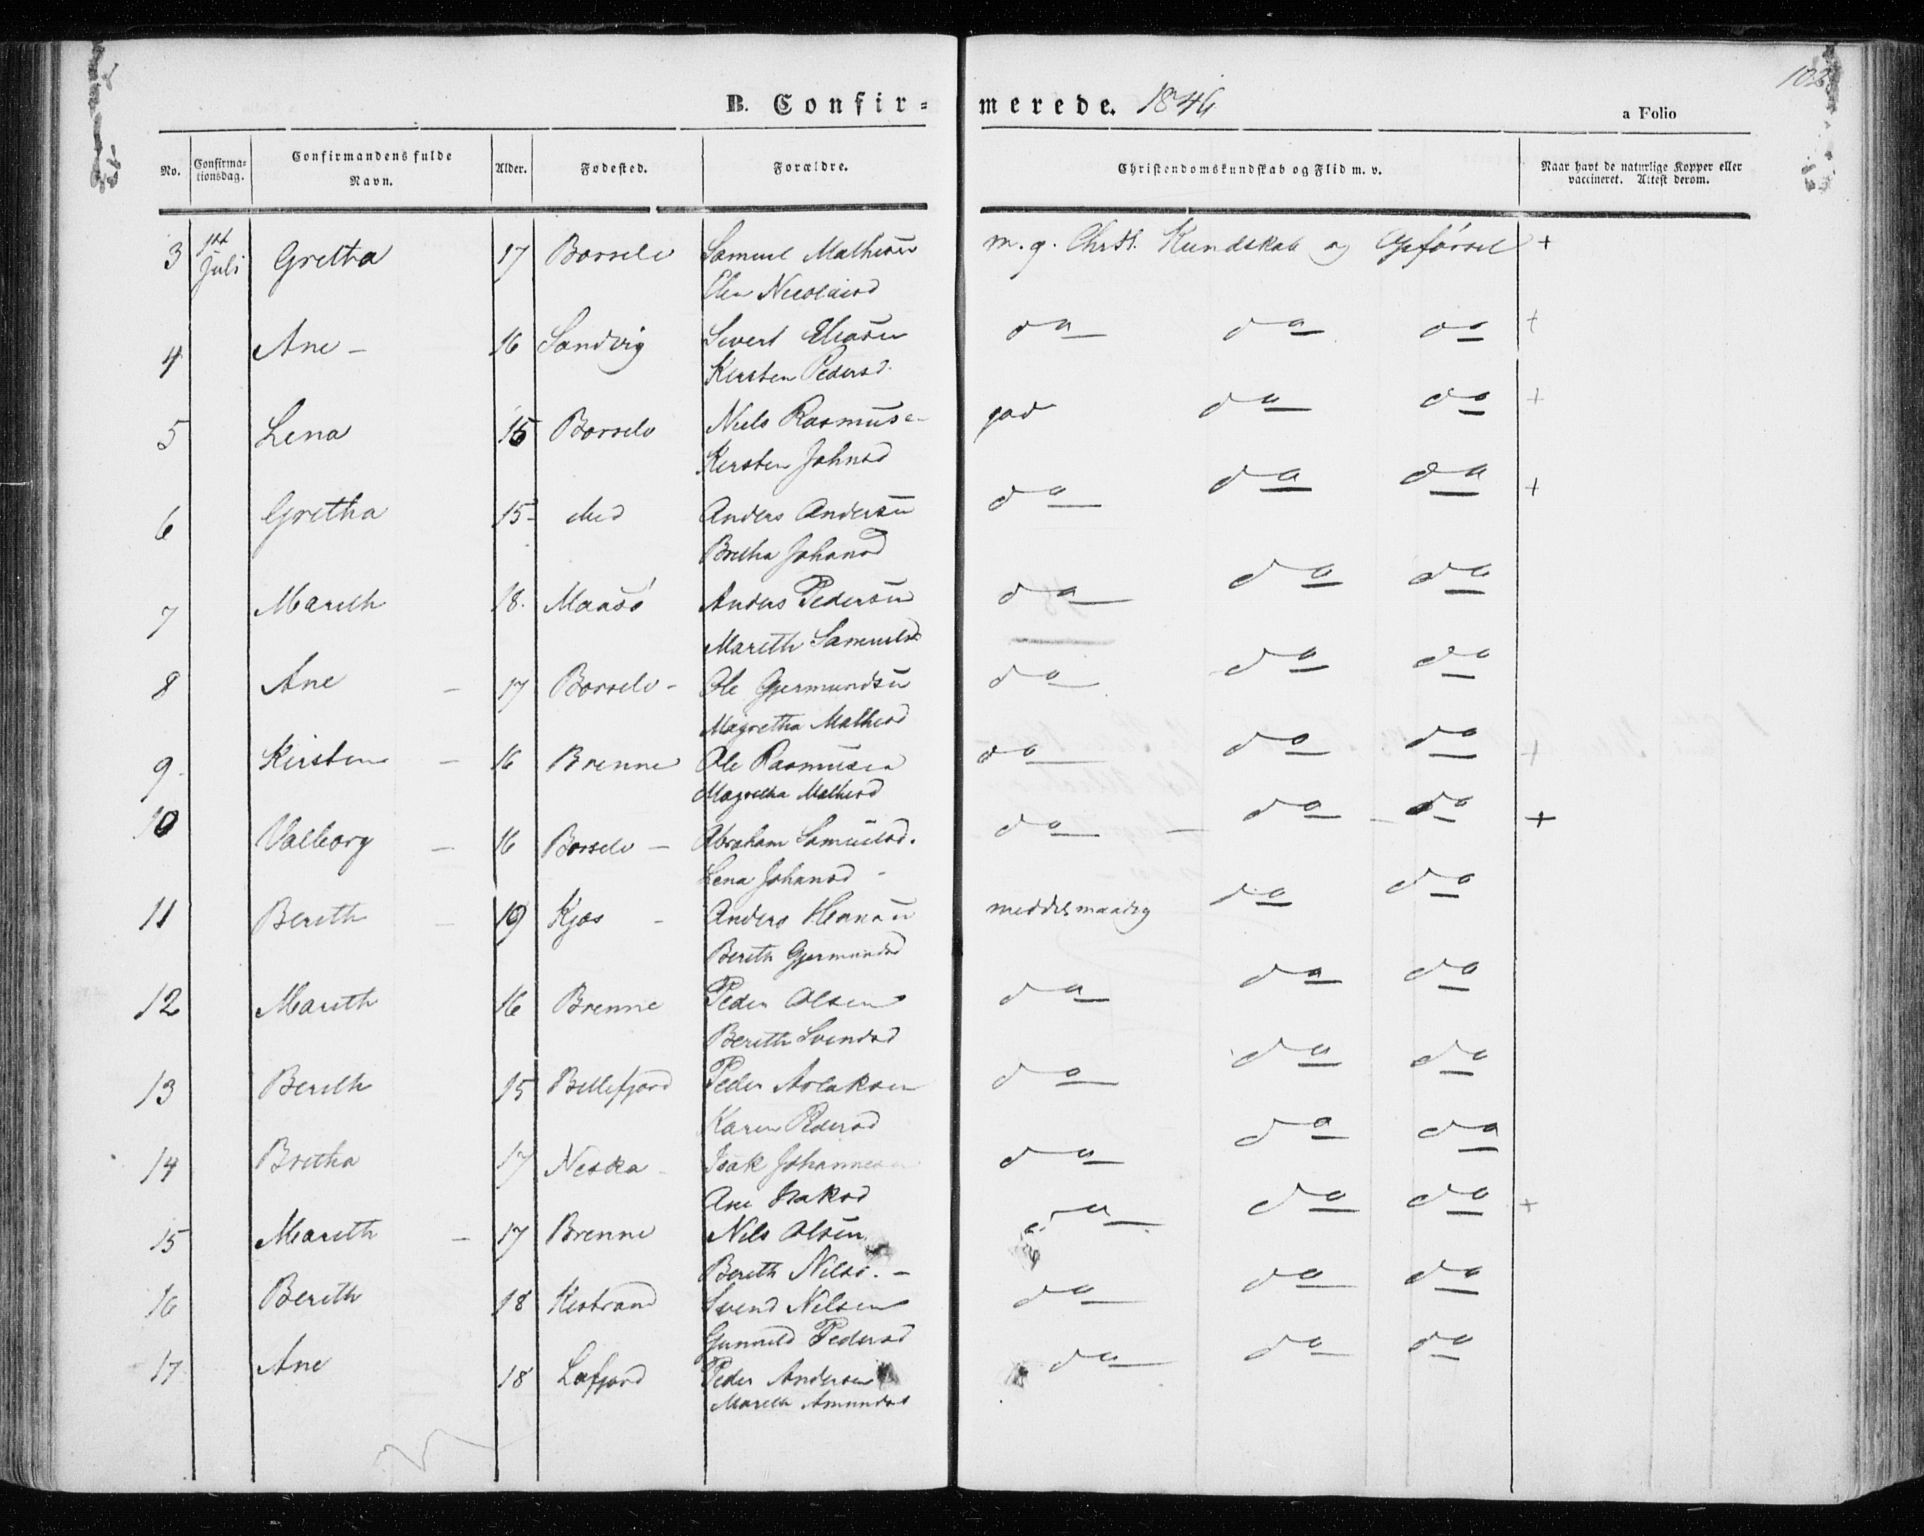 102
B. Confir=merede. 1846
a Folio
No. Confirma-tionsdag. Confirmandens fulde Navn. Alder. Fødested. Forældre. Christendomskundskab og Flid m. v. Naar havt de naturlige Kopper eller vaccineret. Attest derom.
3 Juli Gretha 17 Borselv Samuel Mathisen m. g. Christ. Kundskab og Opførsel +
Elen Nicolaisd
4 Ane - 16 Sandvig Sivert Eliasen do do do +
Kirsten Pedersd.
5 Lena 15 Borselv Niels Rasmusen god do do +
Kirsten Johnsd
6 Gretha 15 Anders Andersen do do do +
Bretha Johansd
7 Mareth 18. Maasø Anders Pedersen do do do
Mareth Samuelsd
8 Ane - 17 Borselv - Ole Gjermundsen do do do
Magretha Mathisd
9 Kirsten - 16 Brenne Ole Rasmusen do do do +
Magretha Mathisd
10 Valborg - 16 Borselv - Abraham Samuelsd. do - do - do +
Lena Johansd -
11 Bereth - 19 Kjæs - Anders Hansen meddelmaadig do do
Bereth Gjermundsd
12 Mareth 16 Brenne Peder Olsen do do do
Bereth Svendsd
13 Bereth 15 Billefjord Peder Aslaksen do do do
Karen Pedersd
14 Bretha 17 Neska - Isak Johannesen do do do
Ane Isaksd
15 Mareth - 17 Brenne Nils Olsen do do do +
Bereth Nilsd. -
16 Bereth 18 Kistrand Svend Nilsen do do do
Gunnild Pedersd
17 Ane 18 Lafjord Peder Andersen do do do
Mareth Amundsd